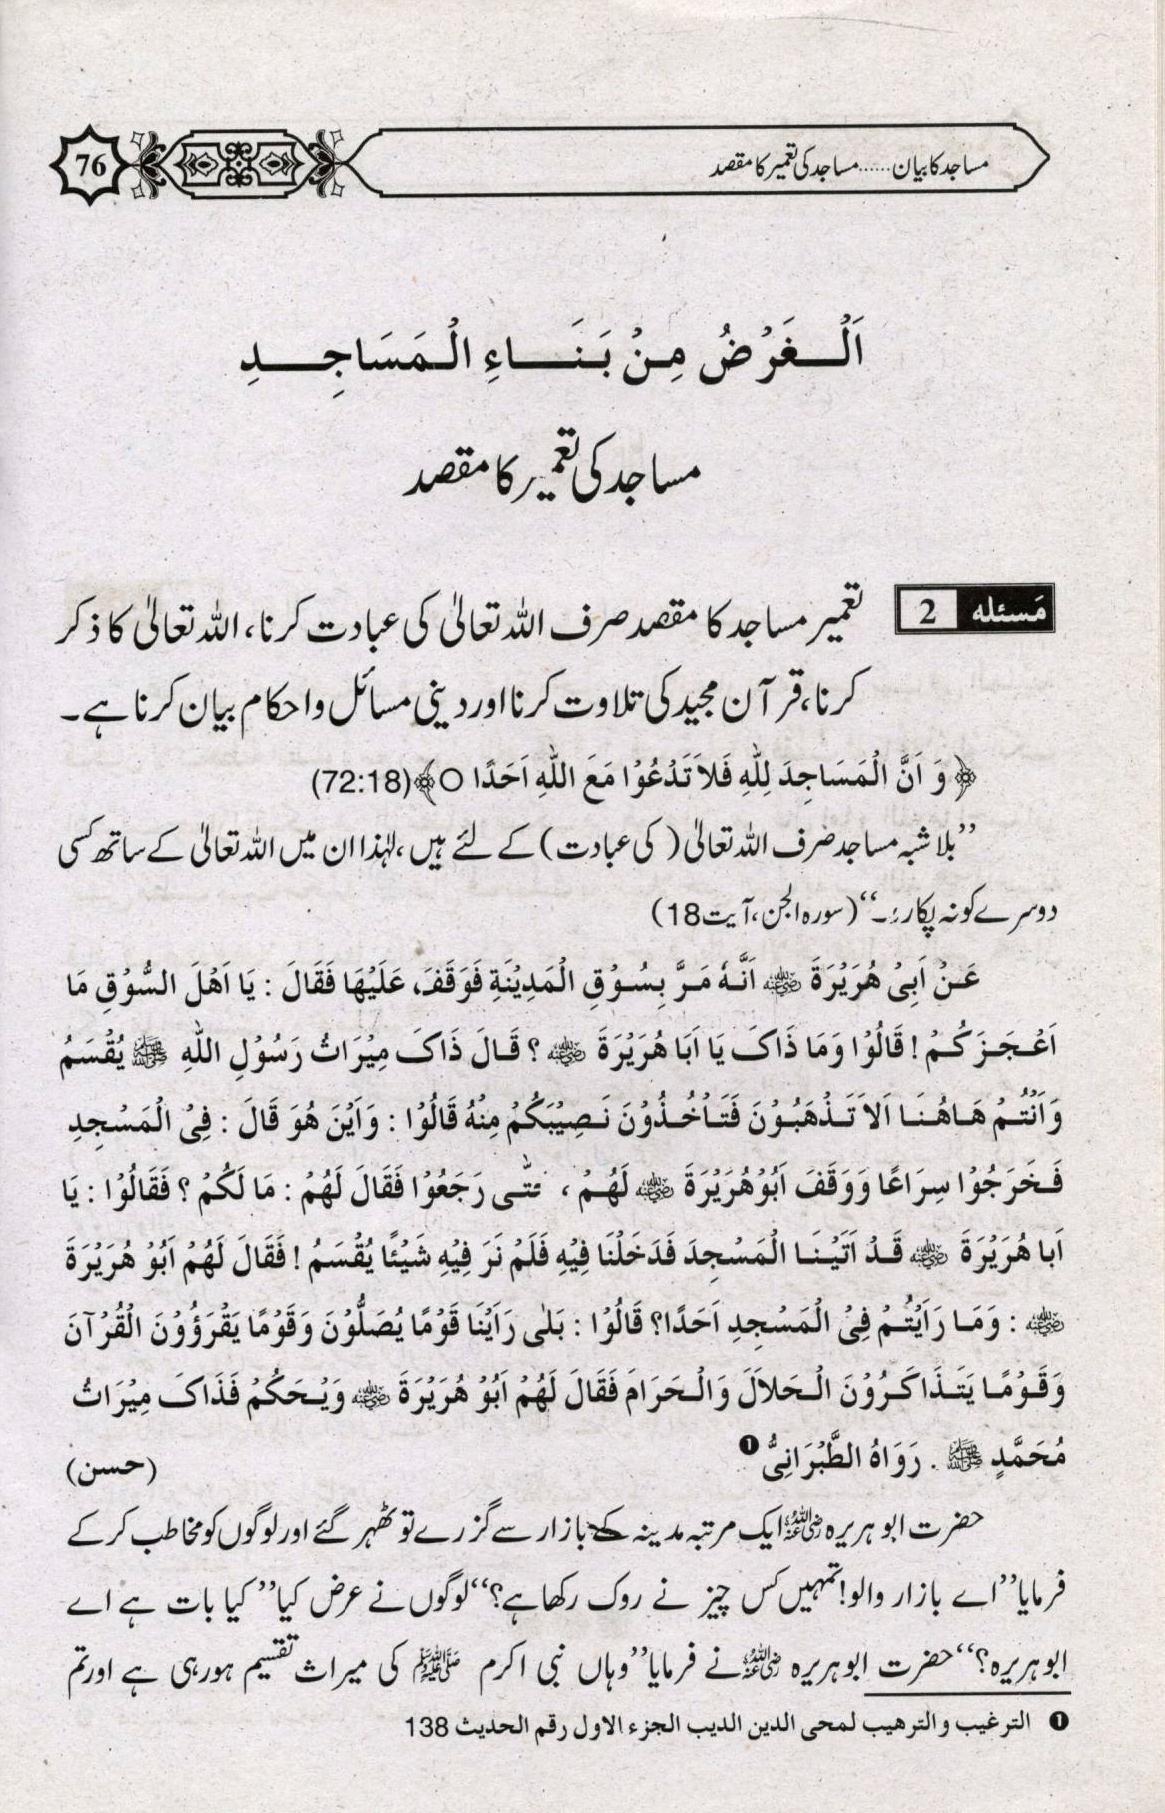 مساجد کا بیان......مساجد کی تعمیر کا مقصد
76
اَلْغَرْضُ مِنْ بَنَاءِ الْمَسَاجِدِ
مساجد کی تعمیر کا مقصد
مَسئله 2 تعمیر مساجد کا مقصد صرف اللہ تعالیٰ کی عبادت کرنا، اللہ تعالیٰ کا ذکر
کرنا، قرآن مجید کی تلاوت کرنا اور دینی مسائل و احکام بیان کرنا ہے۔
﴿ وَ اَنَّ الْمَسَاجِدَ لِلّٰهِ فَلاَ تَدْعُوْا مَعَ اللّٰهِ اَحَدًا ○﴾(72:18)
’’بلا شبہ مساجد صرف اللہ تعالیٰ (کی عبادت) کے لئے ہیں، لہٰذا ان میں اللہ تعالیٰ کے ساتھ کسی
دوسرے کو نہ پکارو۔‘‘ (سورہ الجن، آیت 18)
عَنْ اَبِیْ هُرَیْرَةَ ؓ اَنَّهٗ مَرَّ بِسُوْقِ الْمَدِیْنَةِ فَوَقَفَ عَلَیْهَا فَقَالَ : یَا اَهْلَ السُّوْقِ مَا
اَعْجَزَکُمْ ! قَالُوْا وَمَا ذَاکَ یَا اَبَا هُرَیْرَةَ ؓ ؟ قَالَ ذَاکَ مِیْرَاثُ رَسُوْلِ اللّٰهِ ﷺ یُقْسَمُ
وَاَنْتُمْ هَاهُنَا اَلاَ تَذْهَبُوْنَ فَتَاْخُذُوْنَ نَصِیْبَکُمْ مِنْهُ قَالُوْا : وَاَیْنَ هُوَ قَالَ : فِیْ الْمَسْجِدِ
فَخَرَجُوْا سِرَاعًا وَوَقَفَ اَبُوْهُرَیْرَةَ ؓ لَهُمْ ، حَتّٰی رَجَعُوْا فَقَالَ لَهُمْ : مَا لَکُمْ ؟ فَقَالُوْا : یَا
اَبا هُرَیْرَةَ ؓ قَدْ اَتَیْنَا الْمَسْجِدَ فَدَخَلْنَا فِیْهِ فَلَمْ نَرَ فِیْهِ شَیْئًا یُقْسَمُ ! فَقَالَ لَهُمْ اَبُوْ هُرَیْرَةَ
ؓ : وَمَا رَاَیْتُمْ فِیْ الْمَسْجِدِ اَحَدًا؟ قَالُوْا : بَلٰی رَاَیْنَا قَوْمًا یُصَلُّوْنَ وَقَوْمًا یَقْرَؤُوْنَ الْقُرْآنَ
وَقَوْمًا یَتَذَاکَرُوْنَ الْحَلاَلَ وَالْحَرَامَ فَقَالَ لَهُمْ اَبُوْ هُرَیْرَةَ ؓ وَیْحَکُمْ فَذَاکَ مِیْرَاثُ
مُحَمَّدٍ ﷺ . رَوَاهُ الطَّبْرَانِیُّ❶ (حسن)
حضرت ابو ہریرہ ؓ ایک مرتبہ مدینہ کے بازار سے گزرے تو ٹھہر گئے اور لوگوں کو مخاطب کر کے
فرمایا ’’اے بازار والو! تمہیں کس چیز نے روک رکھا ہے؟‘‘ لوگوں نے عرض کیا ’’کیا بات ہے اے
ابو ہریرہ؟‘‘ حضرت ابو ہریرہ ؓ نے فرمایا ’’وہاں نبی اکرم ﷺ کی میراث تقسیم ہو رہی ہے اور تم
❶ الترغیب و الترهیب لمحی الدین الدیب الجزء الاول رقم الحدیث 138